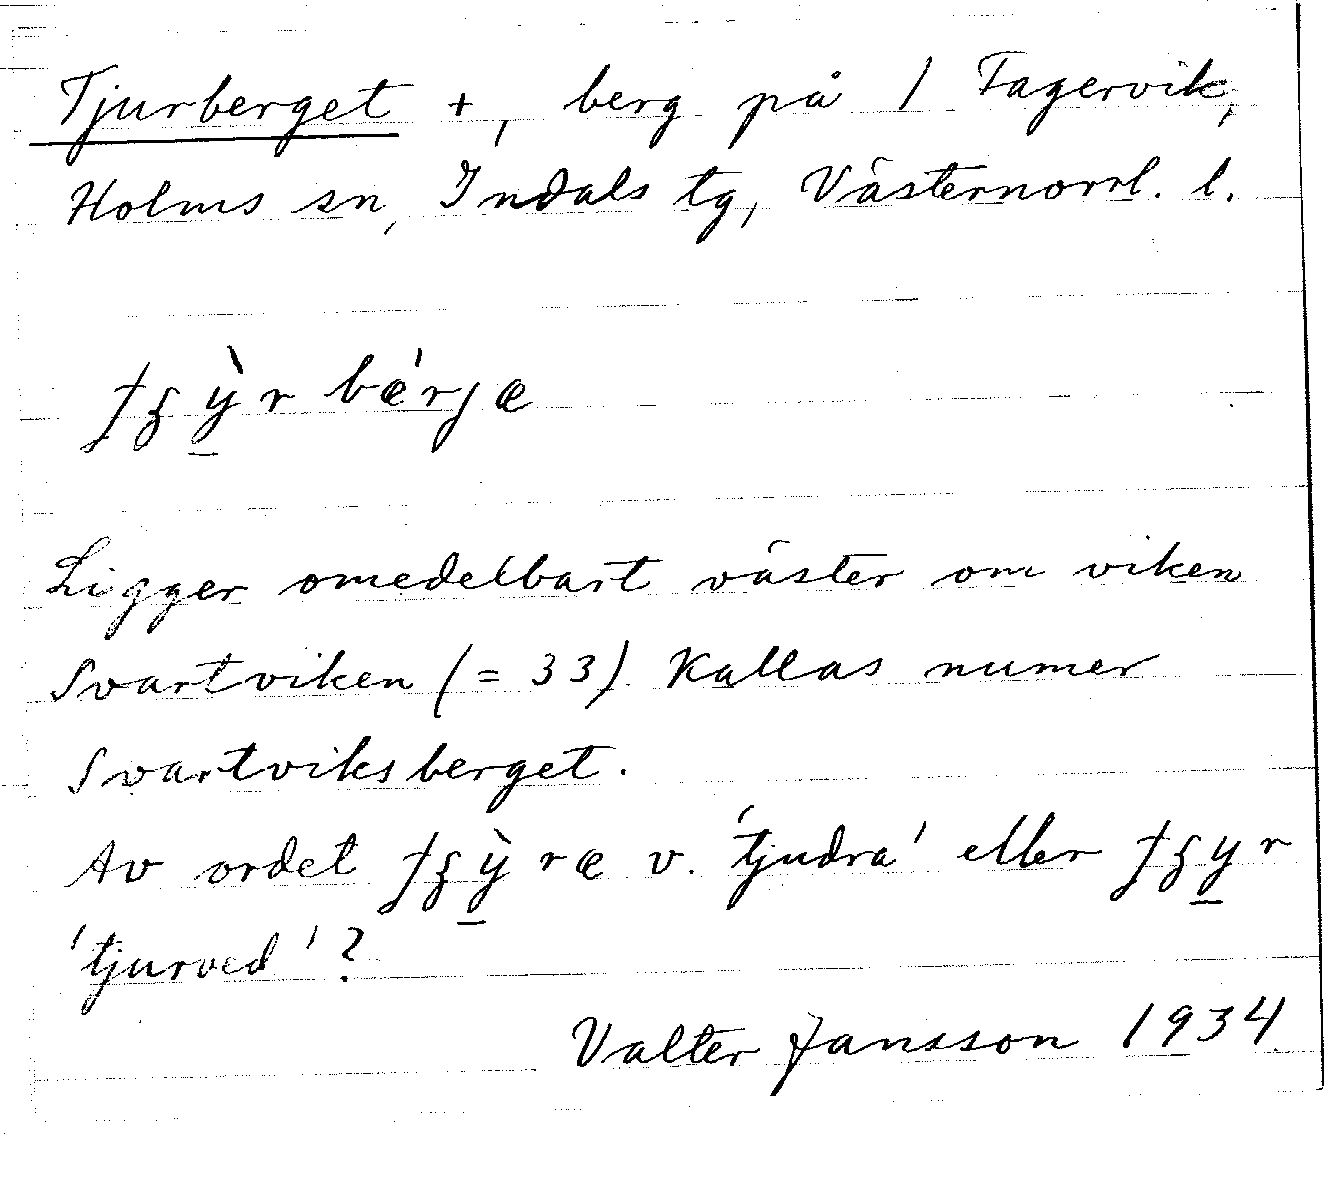 Tjurberget +, berg på 1 Fagervik,
Holms sn, Indals tg, Västernorrl. l.
bǽrjæ
Ligger omedelbart väster om viken
Svartviken (= 33) Kallas numer
Svartviksberget.
Av ordet v. 'tjudra' eller
'tjurved'?
Valter Jansson 1934